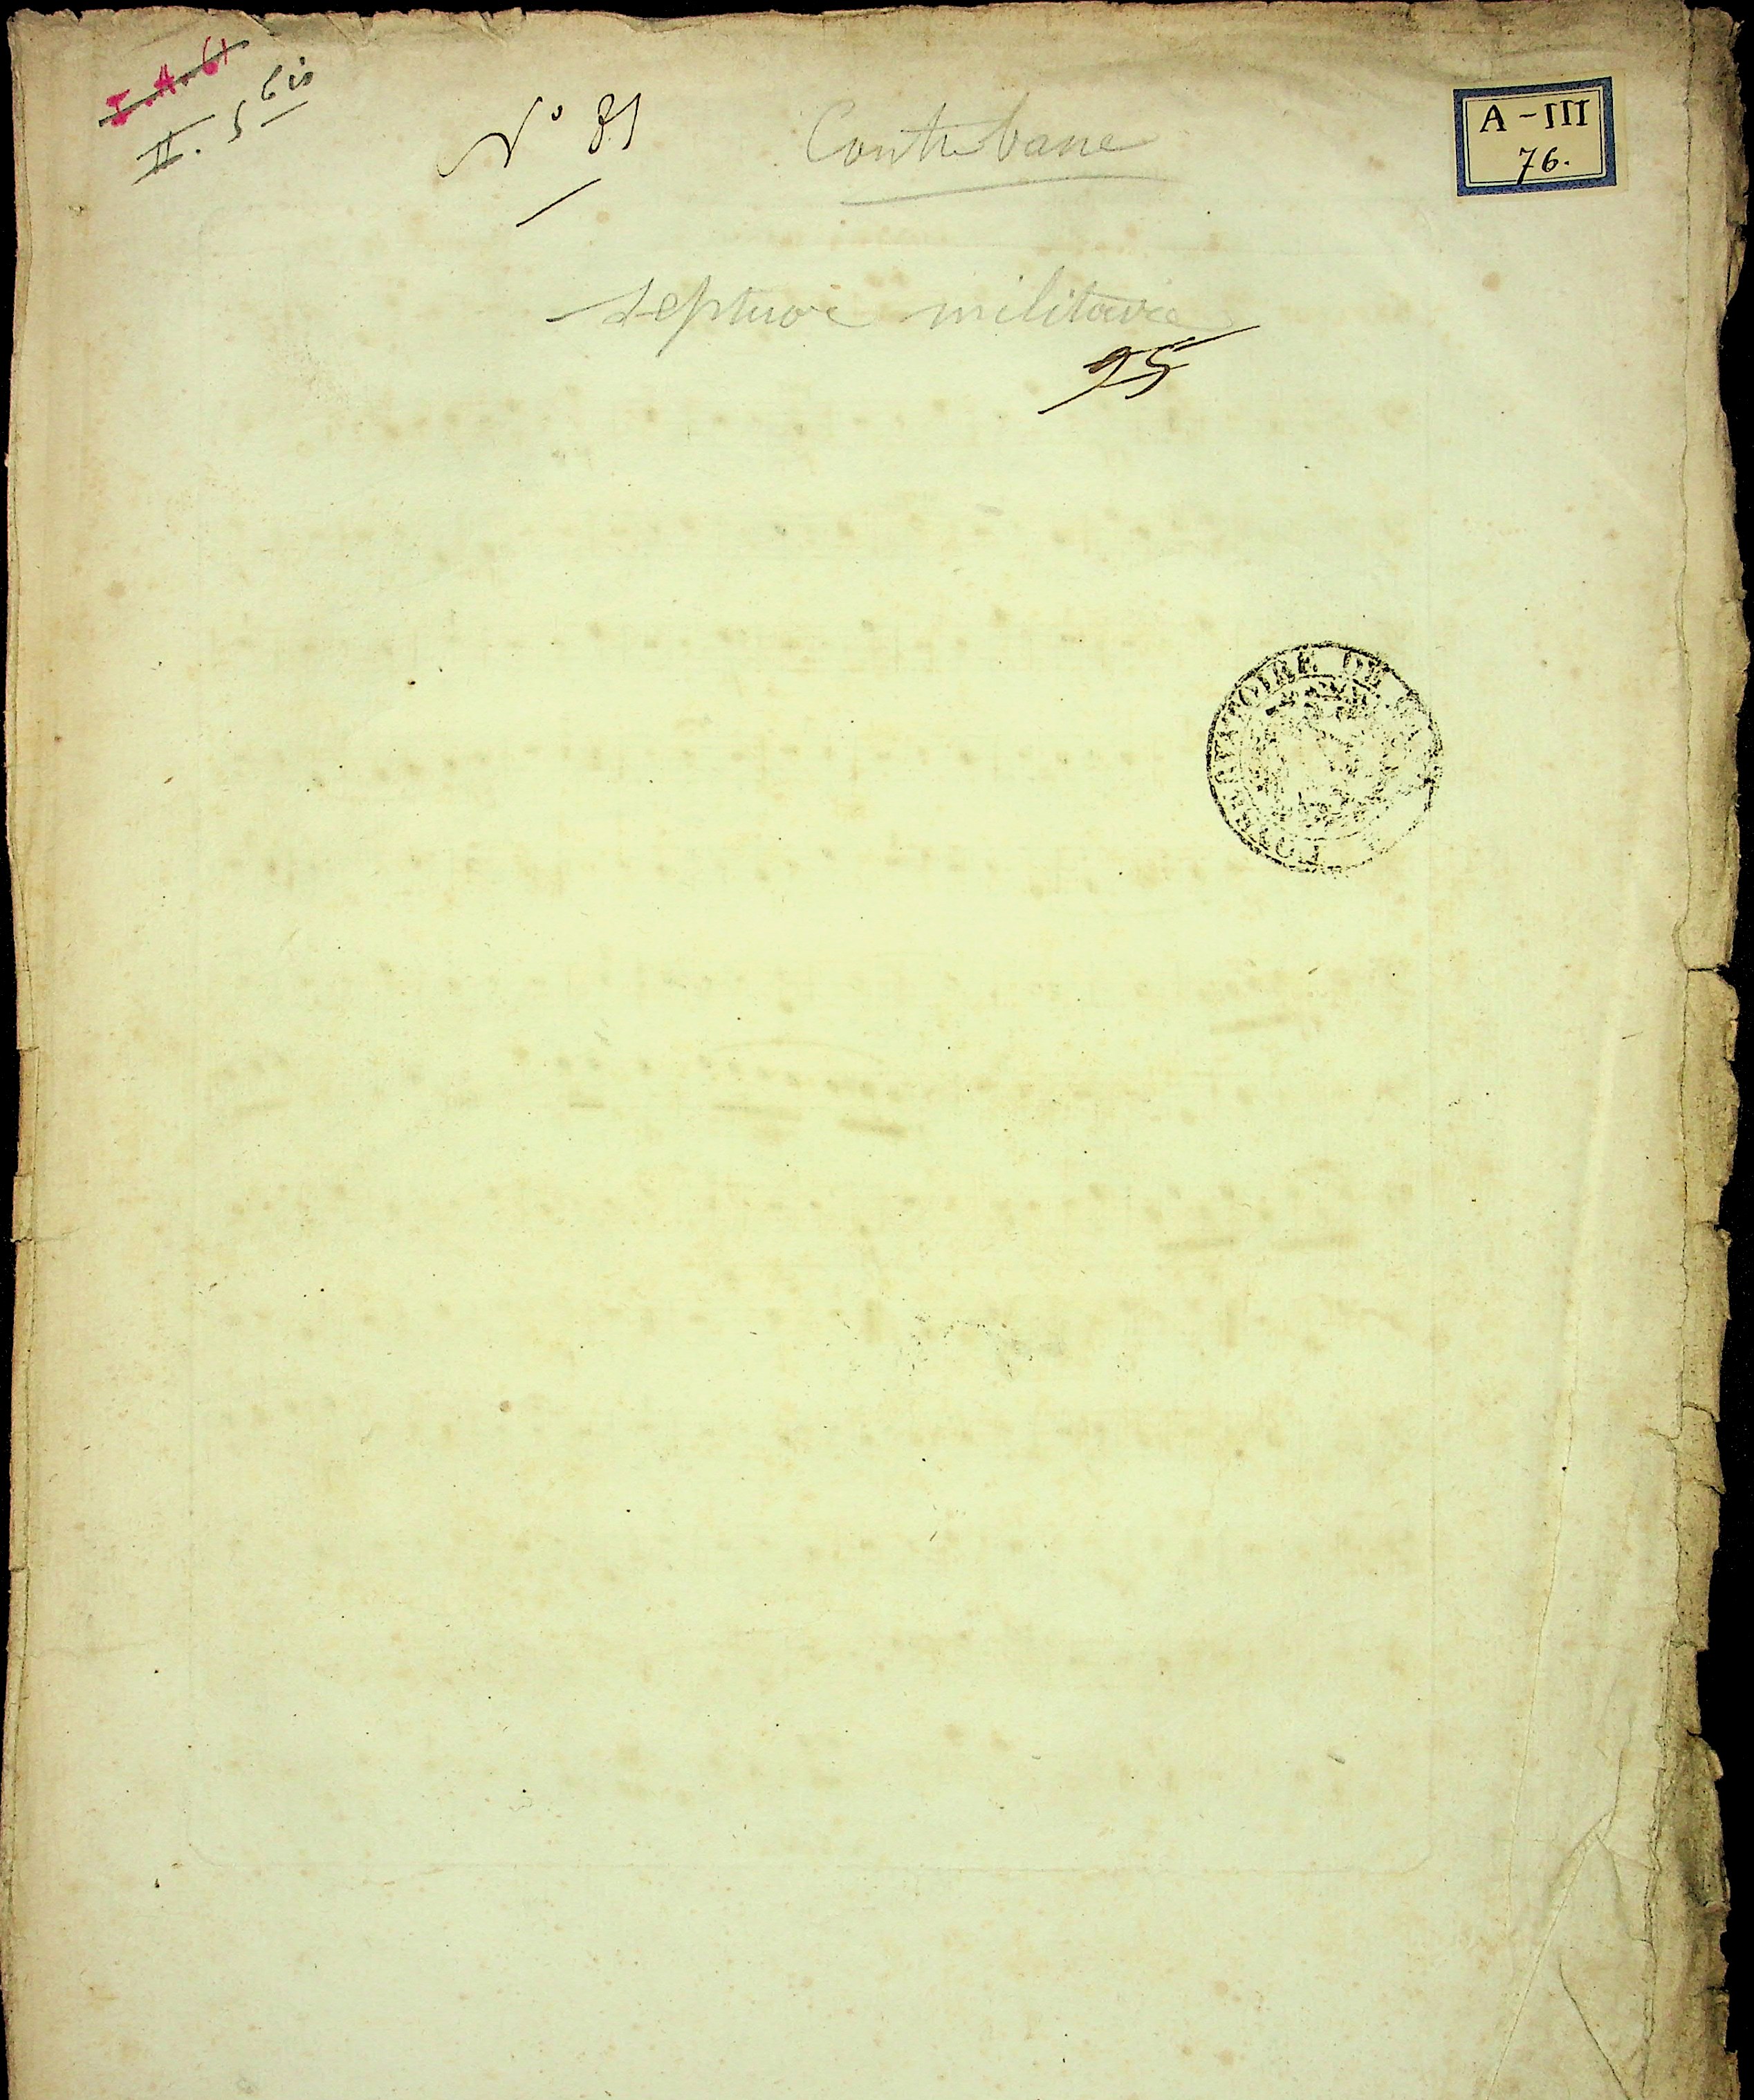 I.A.61
II. 5 bis
N° 31
Contrebasse
A-III
76.
Septuor militaire
95
CONSERVATOIRE DE